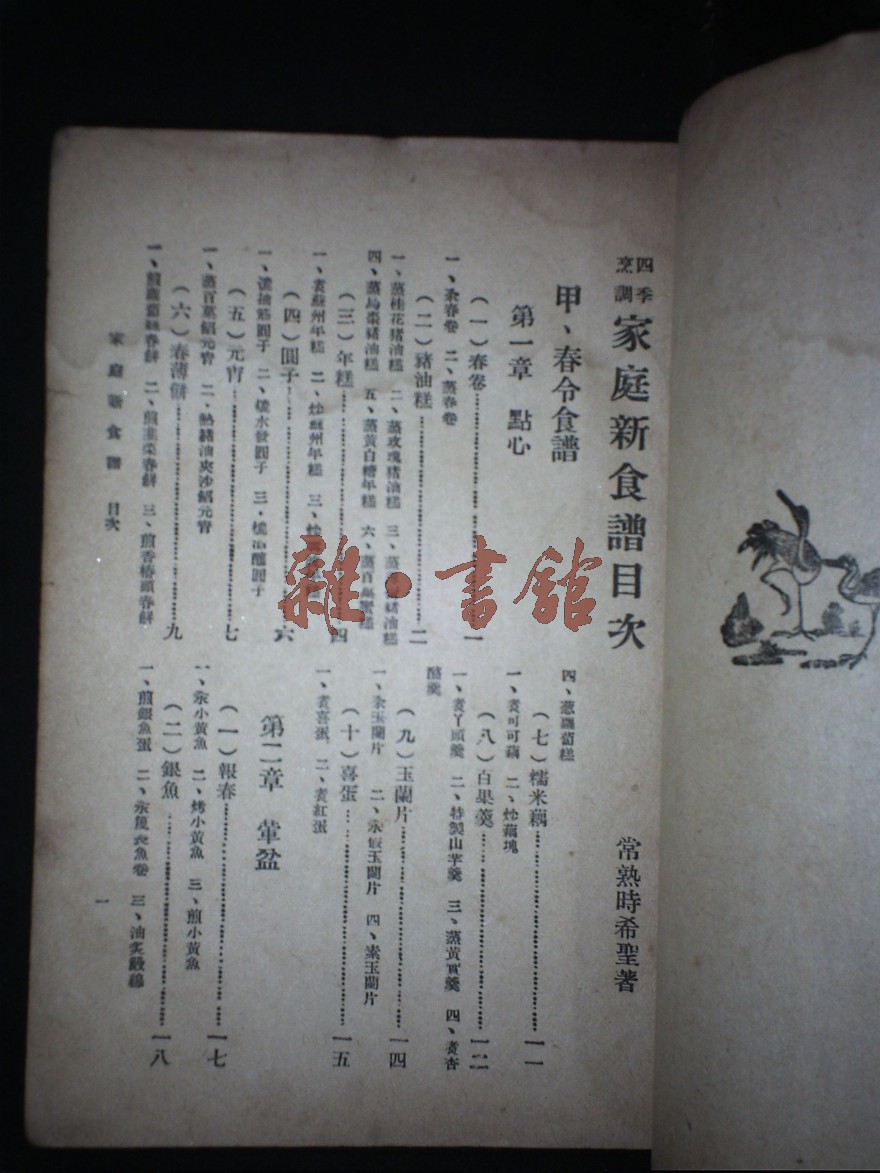 四季烹調 家庭新食譜目次
常熟時希聖著
甲、春令食譜
第一章 點心
(一)春卷……一
一、汆春卷 二、蒸春卷
(二)豬油糕……二
一、蒸桂花豬油糕 二、蒸玫瑰豬油糕 三、蒸 豬油糕
四、蒸烏棗豬油糕 五、蒸黃白糖年糕 六、蒸百菓蜜糕
(三)年糕……四
一、煮蘇州年糕 二、炒蘇州年糕 三、炒
(四)圓子……六
一、 圓子 二、 水 圓子 三、 圓子
(五)元宵……七
一、蒸百菓縚元宵 二、熱豬油夾沙縚元宵
(六)春薄餅……九
一、煎蘿蔔絲春餅 二、煎韮菜春餅 三、煎香椿頭春餅
四、蒸蘿蔔糕
(七)糯米藕……一一
一、煮可可藕 二、炒藕塊
(八)白果羹……一二
一、煮丫頭羹 二、特製山芋羹 三、蒸黃實羹 四、煮杏
酪羹
(九)玉蘭片……一四
一、汆玉蘭片 二、汆 玉蘭片 四、素玉蘭片
(十)喜蛋……一五
一、煮喜蛋 二、煮紅蛋
第二章 葷盆
(一)報春……一七
一、汆小黃魚 二、烤小黃魚 三、煎小黃魚
(二)銀魚……一八
一、煎銀魚蛋 二、汆 魚卷 三、油炙
家庭新食譜 目次
一
雜·書館